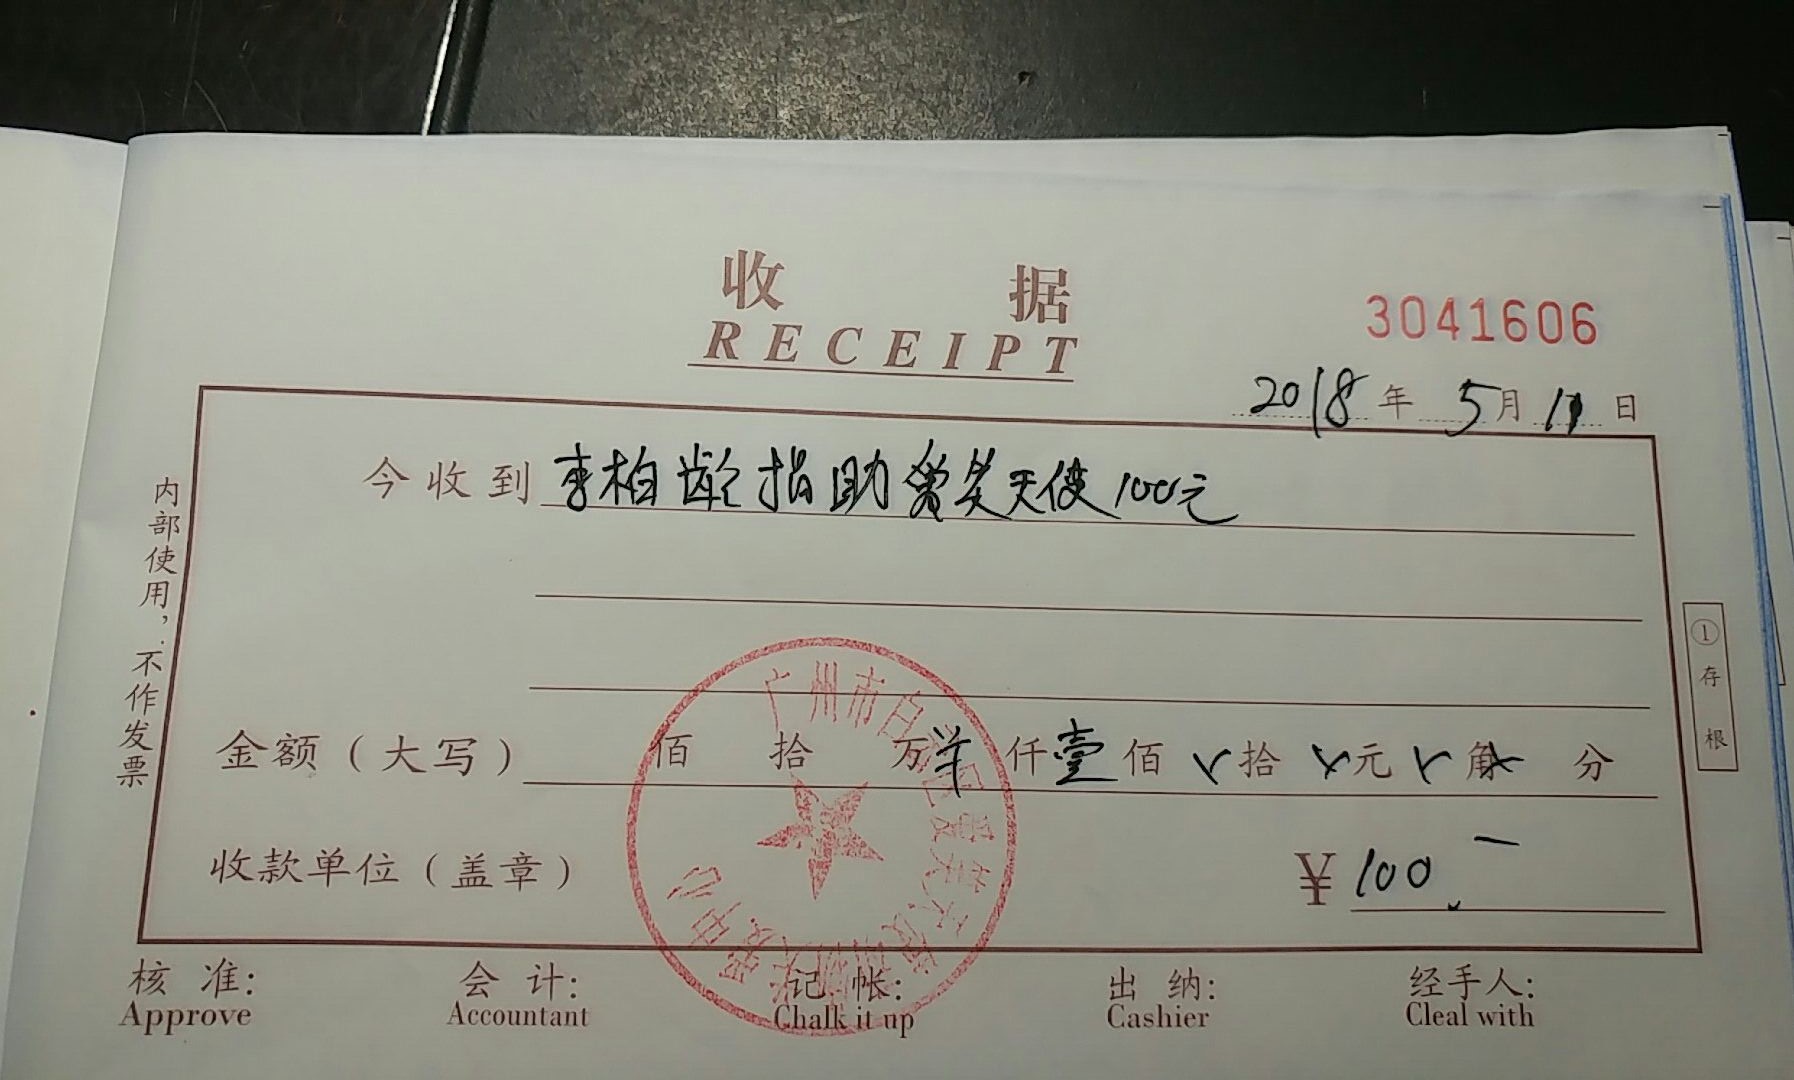 收 据
RECEIPT
3041606
2018年5月11日
今收到 李柏龄捐助爱笑天使100元
金额（大写） 佰 拾 万 仟壹佰 拾 元 角 分
收款单位（盖章） ¥100.—
核 准: 会 计: 记 帐: 出 纳: 经手人:
Approve Accountant Chalk it up Cashier Cleal with
内部使用，不作发票
①存根
广州市白云区爱笑天使 中心